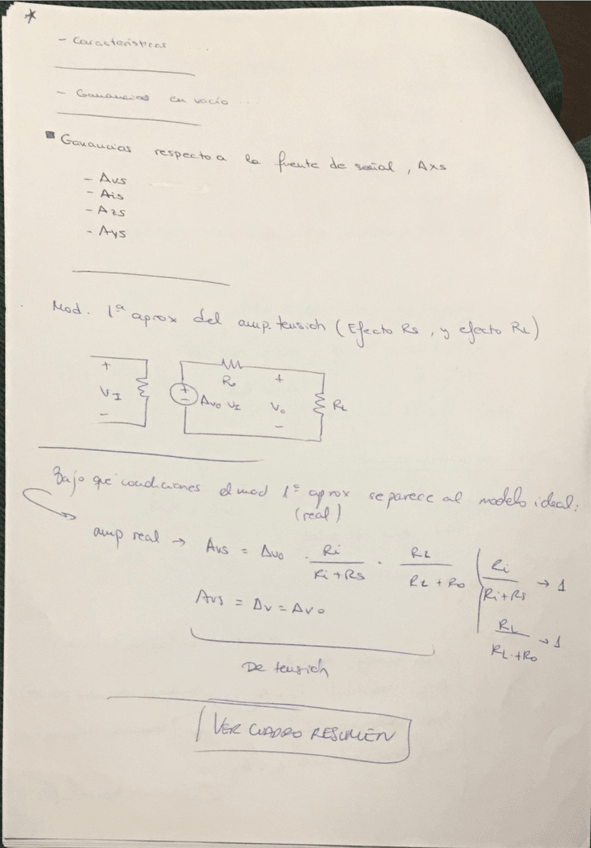 *
- Características
- Ganancias en vacío ...
■ Ganancias respecto a la fuente de señal, Axs
- Avs
- Ais
- Azs
- Ays
Mod. 1ª aprox del amp. tensión (Efecto Rs, y efecto RL)
+ VI -
+ - Avo VI
Ro
+ Vo -
RL
Bajo que condiciones el mod 1ª aprox se parece al modelo ideal:
(real)
amp real → Avs = Avo · Ri / Ri + Rs · RL / RL + Ro
Ri / Ri + Rs → 1
Avs = Av = Avo
RL / RL + Ro → 1
De tensión
VER CUADRO RESUMEN